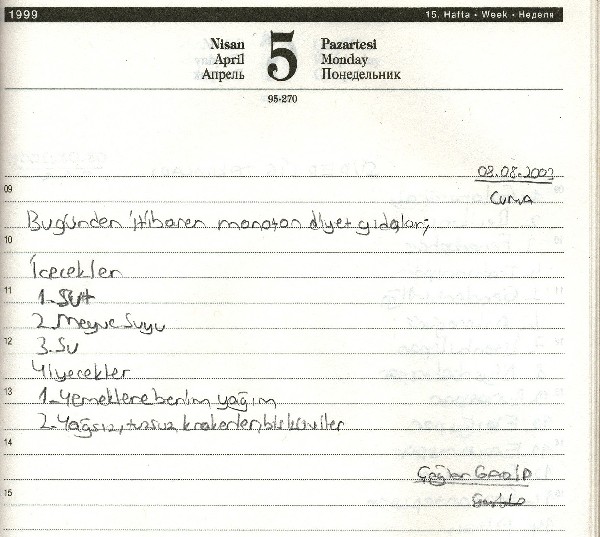 1999
15. Hafta • Week • Неделя
Nisan 5 Pazartesi
April Monday
Апрель Понедельник
95-270
08.08.2003
09
Cuma
Bugünden itibaren monoton diyet gıdaları;
10
İçecekler
11
1-Süt
2-Meyve Suyu
12
3-Su
Yiyecekler
13
1-Yemeklere benim yağım
2-Yağsız, tuzsuz krakerler, bisküviler
14
Çağlar
15